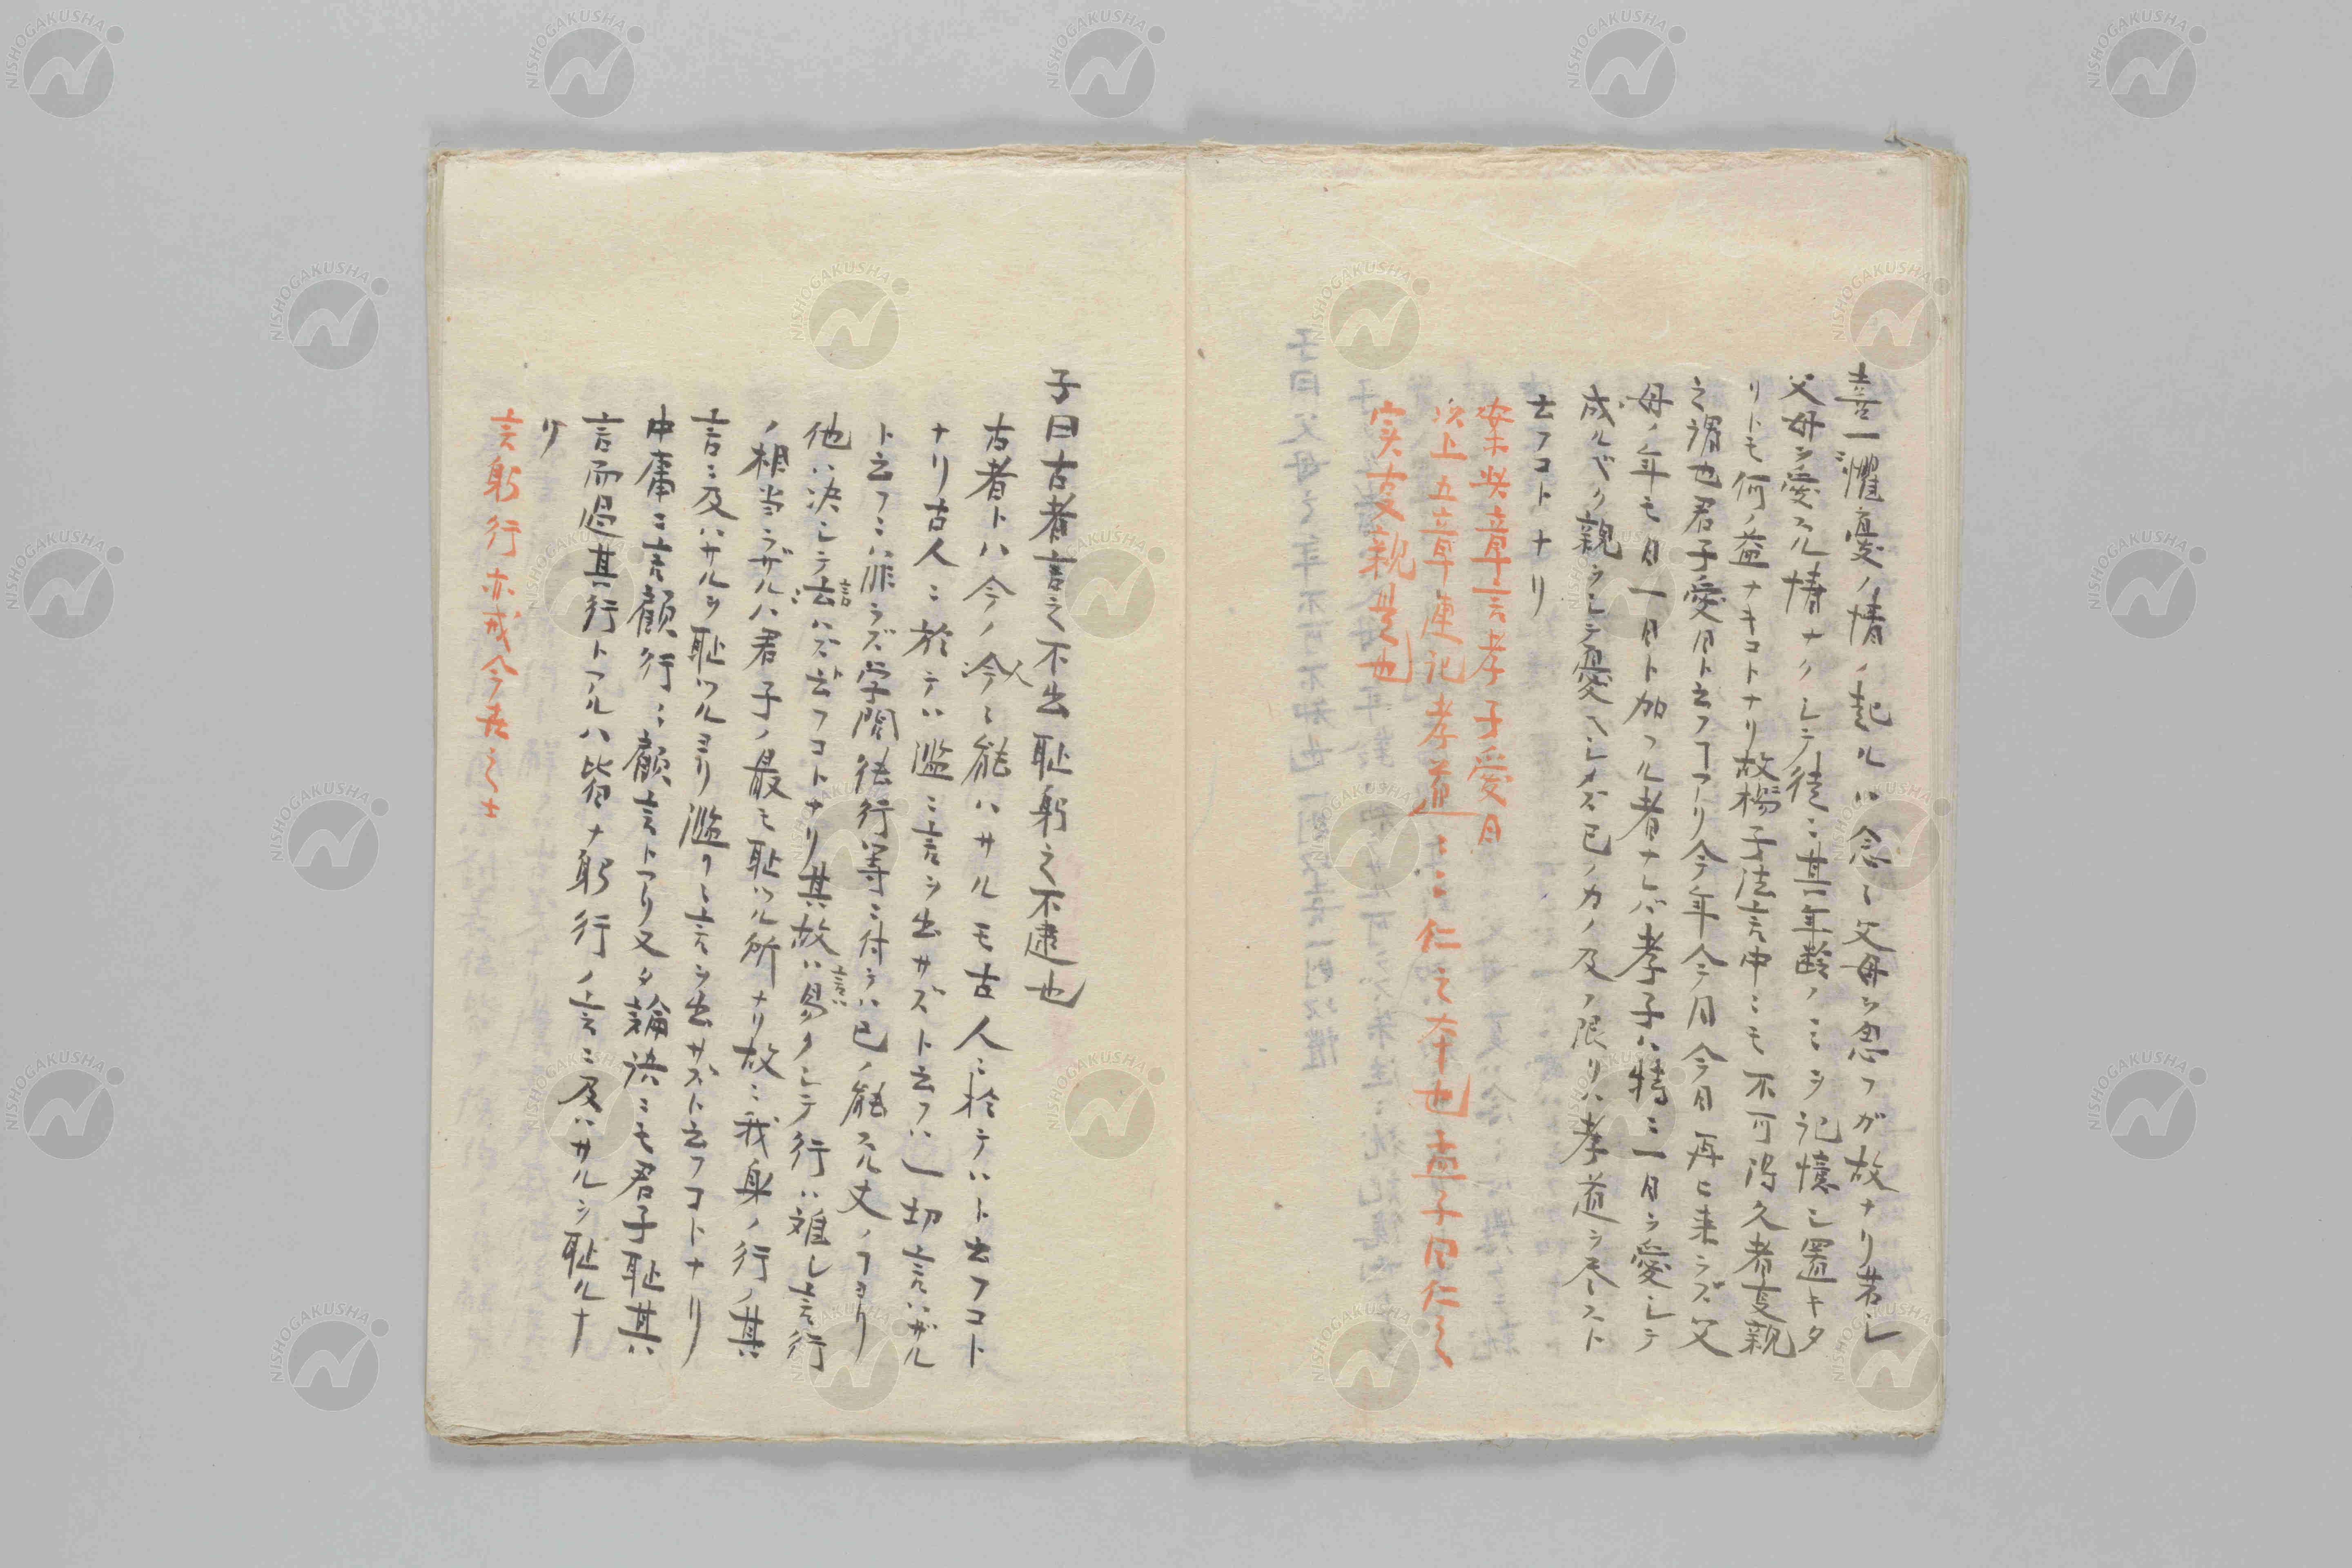 喜一懼憂ノ情ノ起ルハ念々父母ヲ思フガ故ナリ若シ
父母ヲ愛スル情ナクシテ徒ニ其年齢ノミヲ記憶シ置キタ
リトモ何ノ益ナキコトナリ故楊子法言中ニモ不可得久者事親
之謂也君子愛日ト云フヿアリ今年今月今日再ヒ来ラズ父
母ノ年モ日一日ト加フル者ナレバ孝子ハ特ニ一日ヲ愛シテ
成ルベク親ヲシテ憂ヘシメズ己ノ力ノ及フ限リハ孝道ヲ尽スト
云フコトナリ
案此章言孝子愛日
以上五章連記孝道ニニ仁之本也孟子曰仁之
実事親是也
子曰古者言之不出恥躬之不逮也
古者トハ今ノ今人々能ハサルモ古人ニ於テハト云フコト
ナリ古人ニ於テハ濫ニ言ヲ出サズト云フハ一切言ハザル
ト云フニハ非ラズ学問徳行等ニ付テハ己ノ能スル丈ノヿヨリ
他ハ決シテ言ハズト云フコトナリ其故ハ言ハ易クシテ行ハ難シ言行
ノ相当ラザルハ君子ノ最モ恥ツル所ナリ故ニ我身ノ行ノ其
言ニ及ハサルヲ恥ツルヨリ濫リニ言ヲ出サズト云フコトナリ
中庸ニ言顧行ニ顧言トアリ又タ論語ニモ君子恥其
言而過其行トアルハ皆ナ躬行ノ言ニ及ハサルヲ恥ルナ
リ
言躬行亦戒今世之士
NISHOGAKUSHA